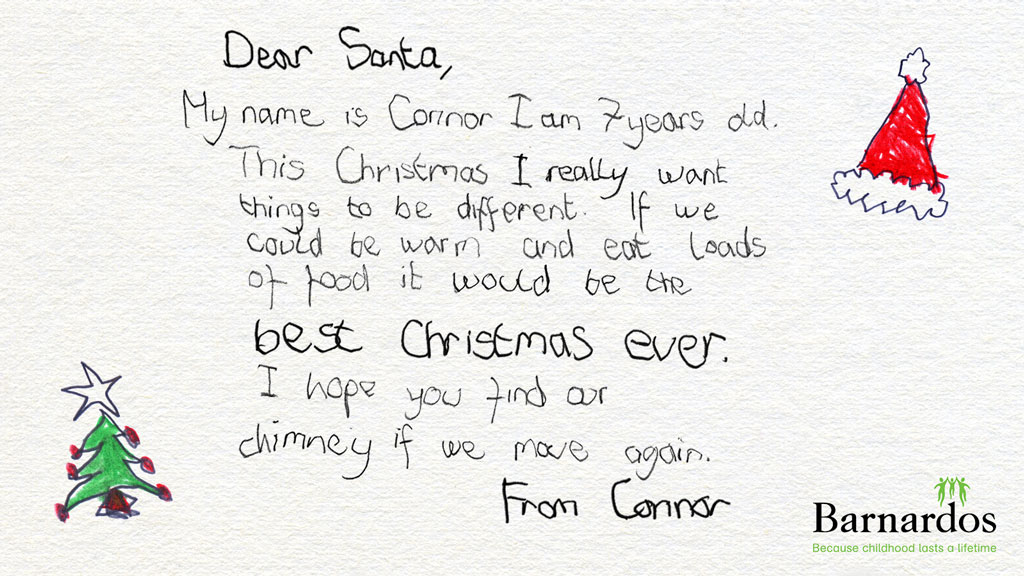 Dear Santa,
My name is Connor I am 7 years old.
This Christmas I really want
things to be different. If we
could be warm and eat loads
of food it would be the
best Christmas ever.
I hope you find our
chimney if we move again.
From Connor
Barnardos
Because childhood lasts a lifetime